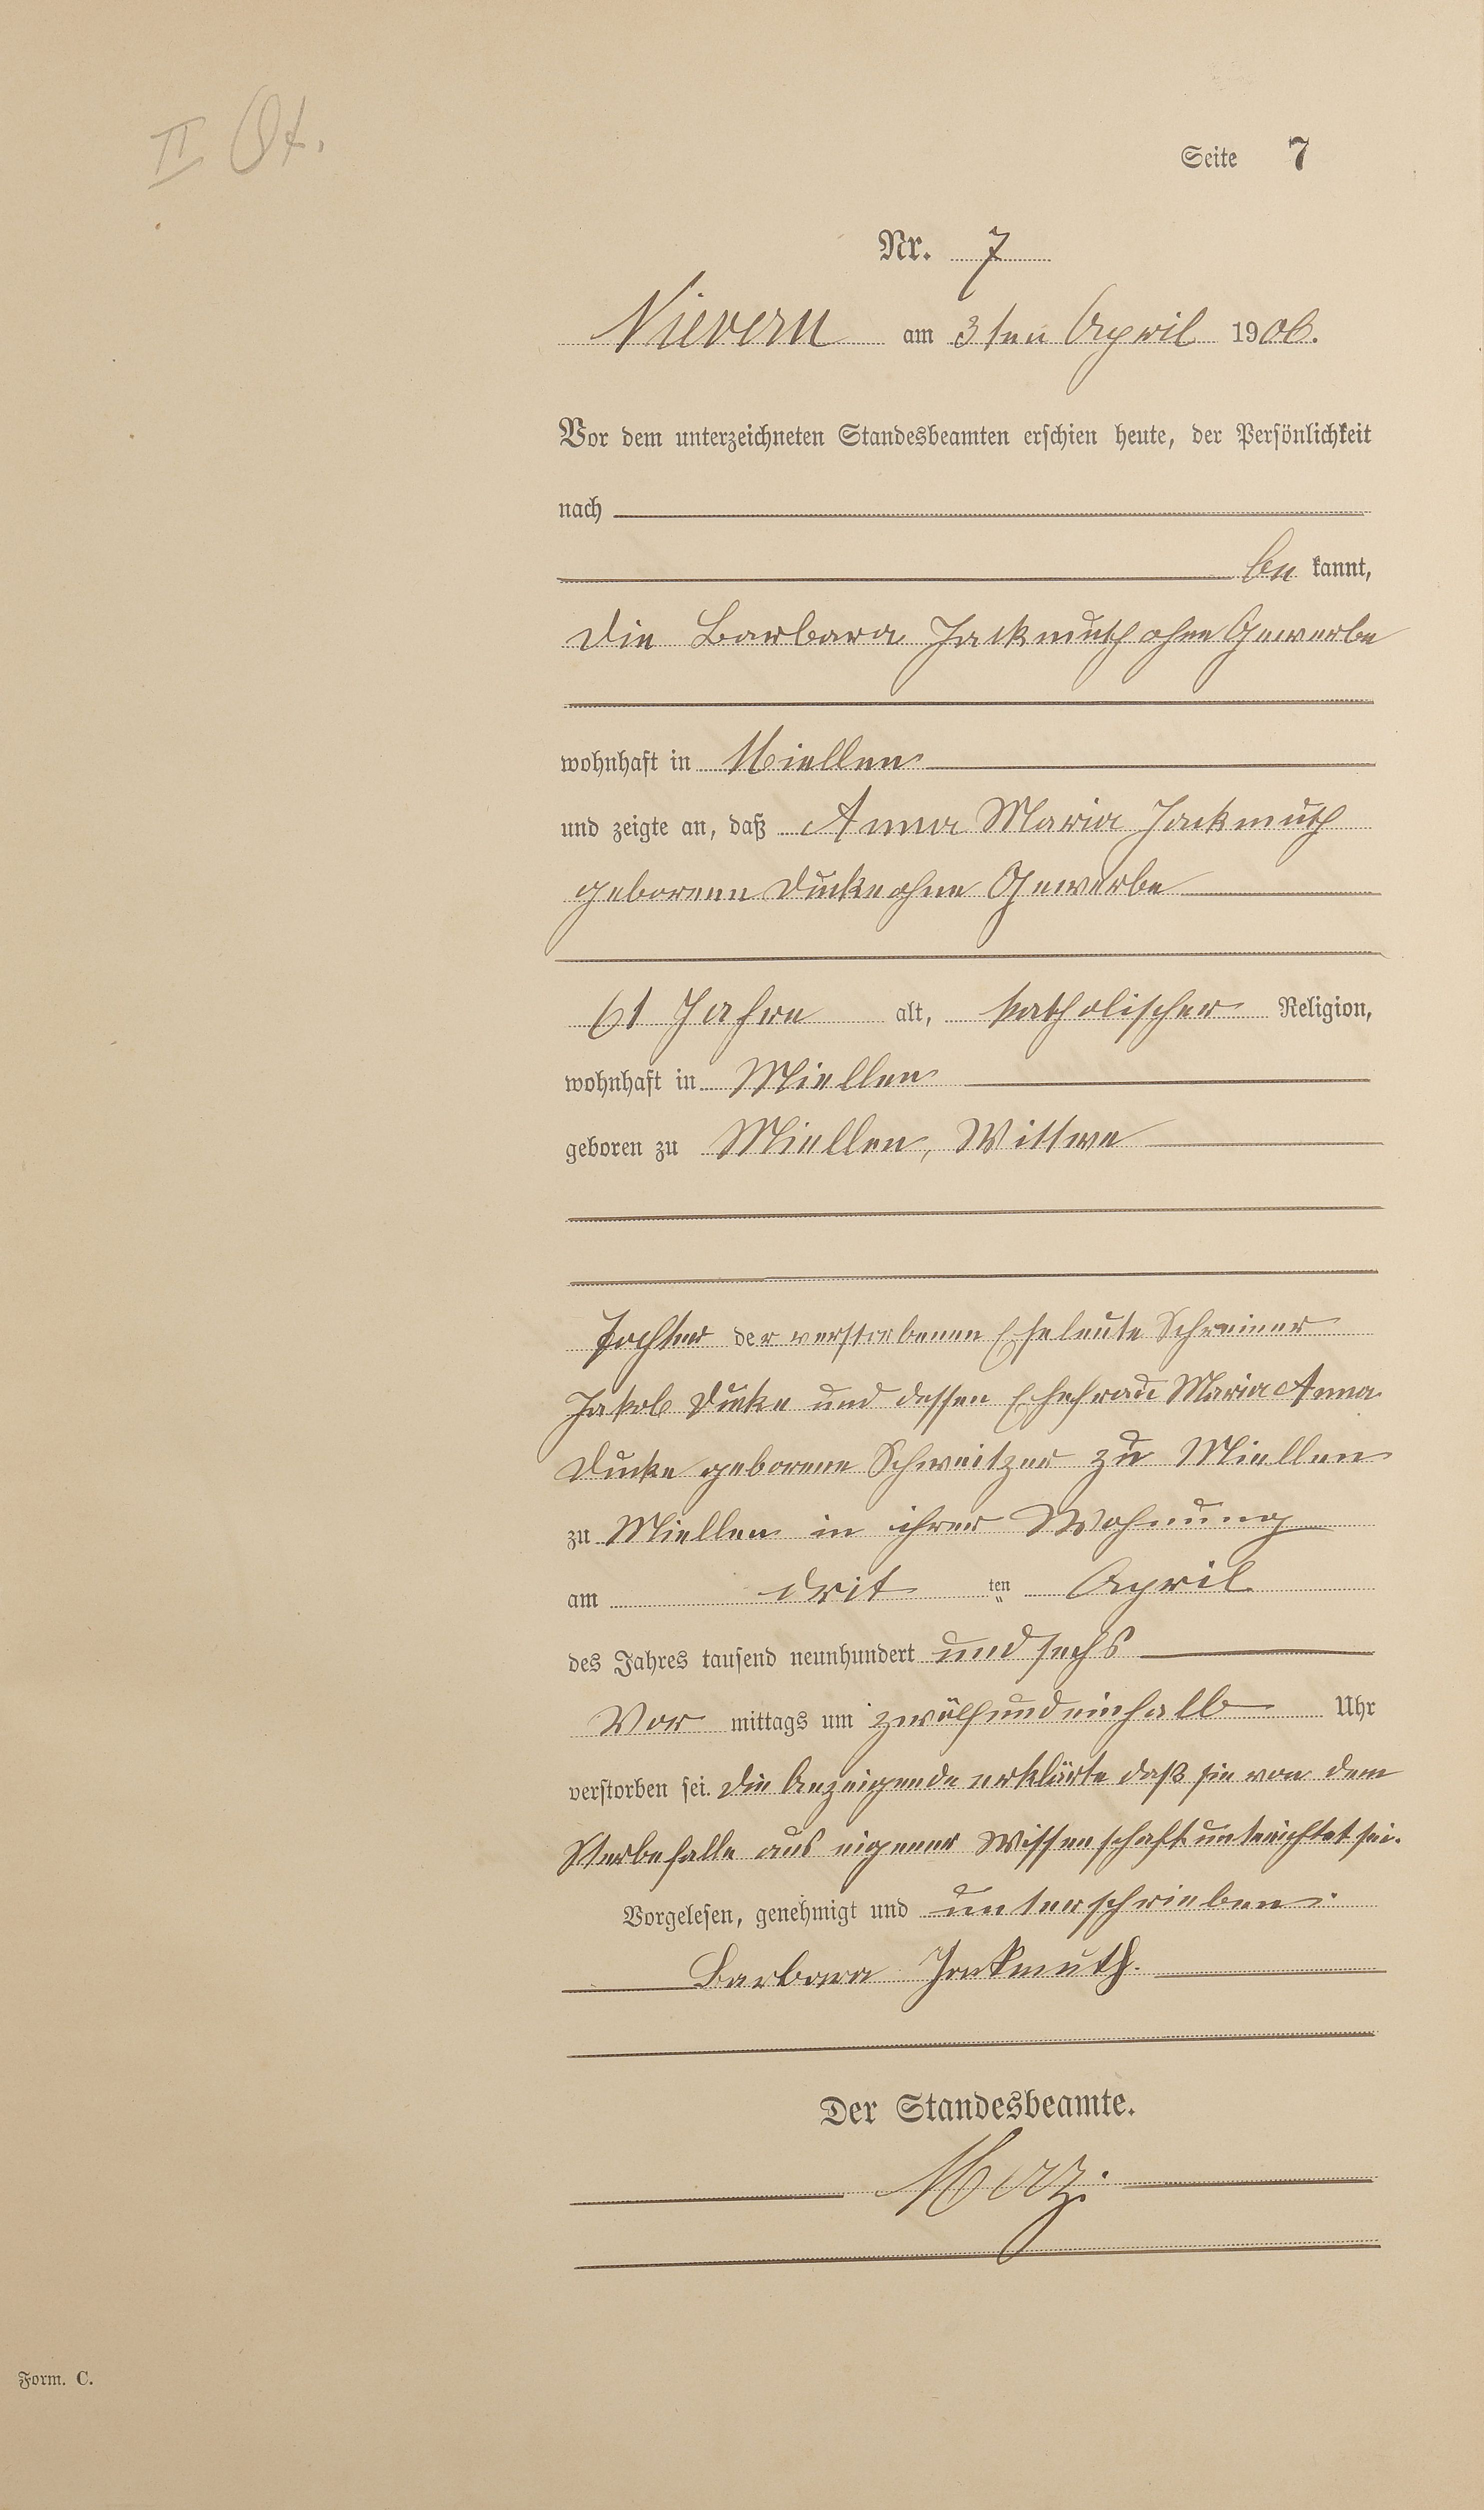 II Qt.
Seite 7
Nr. 7
Nievern am 3ten April 1906.
Vor dem unterzeichneten Standesbeamten erschien heute, der Persönlichkeit
nach
be kannt,
die Barbara Jackmuth ohne Gewerbe
wohnhaft in Miellen
und zeigte an, daß Anna Maria Jackmuth
geborene Ducke ohne Gewerbe
61 Jahre alt, katholischer Religion,
wohnhaft in Miellen
geboren zu Miellen, Wittwe
Tochter der verstorbenen Eheleute Schreiner
Jakob Ducke und dessen Ehefrau Maria Anna
Ducke geborene Schweitzer zu Miellen
zu Miellen in ihrer Wohnung
am drit ten April
des Jahres tausend neunhundert und sechs
Vor mittags um zwölfundeinhalb Uhr
verstorben sei. Die Anzeigende erklärte daß sie von dem
Sterbefalle aus eigener Wissenschaft unterichtet sei.
Vorgelesen, genehmigt und unterschrieben:
Barbara Jackmuth.
Der Standesbeamte.
Merz.
Form. C.